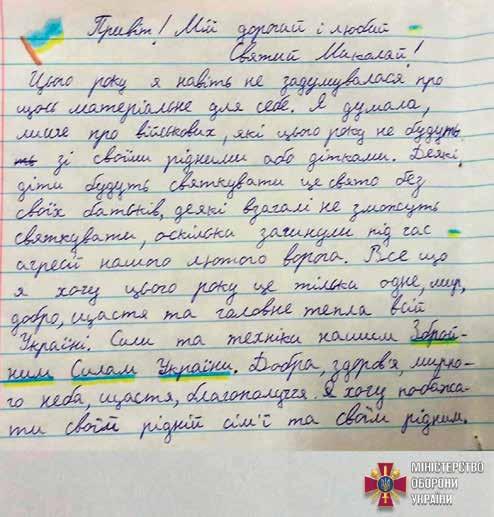 Привіт! Мій дорогий і любий
Святий Миколай!
Цього року я навіть не задумувалася про
щось матеріальне для себе. Я думала,
лише про військових, які цього року не будуть
ть зі своїми рідними або дітками. Деякі
діти будуть святкувати це свято без
своїх батьків, деякі взагалі не зможуть
святкувати, оскільки загинули під час
агресії нашого лютого ворога. Все що
я хочу цього року це тільки одне, мир,
добро, щастя та головне тепла всій
Україні. Сили та техніки нашим Зброй-
ним Силам України. Добра, здоров'я, мирно-
го неба, щастя, благополуччя я хочу побажа-
ти своїй рідній сім'ї та своїм рідним.
МІНІСТЕРСТВО
ОБОРОНИ
УКРАЇНИ